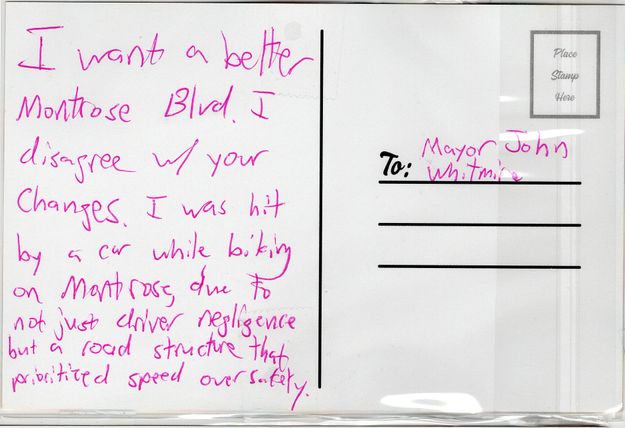 I want a better
Montrose Blvd. I
disagree w/ your
Changes. I was hit
by a car while biking
on Montrose, due to
not just driver negligence
but a road structure that
prioritized speed over safety.
Place
Stamp
Here
To: Mayor John
Whitmire